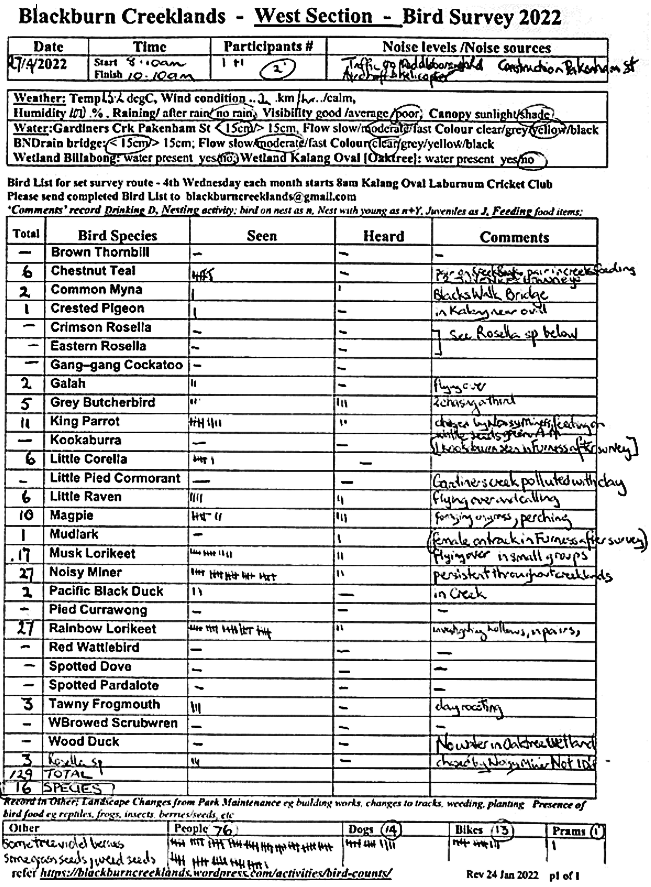 Blackburn Creeklands - West Section - Bird Survey 2022
Date Time Participants # Noise levels /Noise sources
27/4/2022 Start 8:10am 1 + 1 Traffic on Middleborough Rd Construction Pakenham St
Finish 10.10am 2 Aircraft Helicopter
Weather: Temp degC, Wind condition km/hr../calm,
Humidity 100 %. Raining/ after rain/ no rain, Visibility good /average /poor; Canopy sunlight/shade
Water:Gardiners Crk Pakenham St <15cm/> 15cm, Flow slow/moderate/fast Colour clear/grey/yellow/black
BNDrain bridge: <15cm/> 15cm; Flow slow/moderate/fast Colour clear/grey/yellow/black
Wetland Billabong: water present yes/no; Wetland Kalang Oval [Oaktree]: water present yes/no
Bird List for set survey route - 4th Wednesday each month starts 8am Kalang Oval Laburnum Cricket Club
Please send completed Bird List to blackburncreeklands@gmail.com
'Comments' record Drinking D, Nesting activity: bird on nest as n, Nest with young as n+Y, Juveniles as J, Feeding food items:
Total Bird Species Seen Heard Comments
– Brown Thornbill – – –
6 Chestnut Teal – pair in creek feeding
2 Common Myna Blacks Walk Bridge
1 Crested Pigeon – in Kalang near oval
– Crimson Rosella – –
– Eastern Rosella – – ] See Rosella sp below
– Gang–gang Cockatoo – –
2 Galah – flying over
5 Grey Butcherbird 2 chasing a third
11 King Parrot chased by Noisy miners, feeding on
– Kookaburra – – [1 Kookaburra seen in Furness after survey]
6 Little Corella –
– Little Pied Cormorant – – Gardiners creek polluted with clay
6 Little Raven flying over and calling
10 Magpie foraging in grass, perching
1 Mudlark – (female on track in Furness after survey)
17 Musk Lorikeet flying over in small groups
27 Noisy Miner persistent throughout creeklands
2 Pacific Black Duck – in Creek
– Pied Currawong – – –
27 Rainbow Lorikeet investigating hollows, in pairs,
– Red Wattlebird – – –
– Spotted Dove – – –
– Spotted Pardalote – – –
3 Tawny Frogmouth – day roosting
– WBrowed Scrubwren – – –
– Wood Duck – – No water in Oaktree Wetland
3 Rosella sp – chased by Noisy Miner Not ID'd
129 TOTAL
16 SPECIES
Record in Other; Landscape Changes from Park Maintenance eg building works, changes to tracks, weeding, planting Presence of
bird food eg reptiles, frogs, insects, berries/seeds, etc
Other People 76 Dogs 14 Bikes 13 Prams 1
Some tree violet berries
Some grass seeds, weed seeds
refer https://blackburncreeklands.wordpress.com/activities/bird-counts/ Rev 24 Jan 2022 p1 of 1